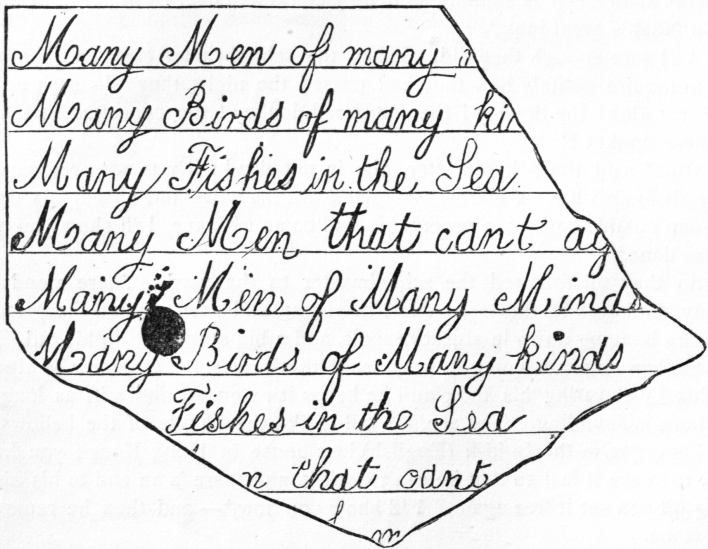 Many Men of many
Many Birds of many ki
Many Fishes in the Sea
Many Men that cant ag
Many Men of Many Minds
Many Birds of Many kinds
Fishes in the Sea
n that cant